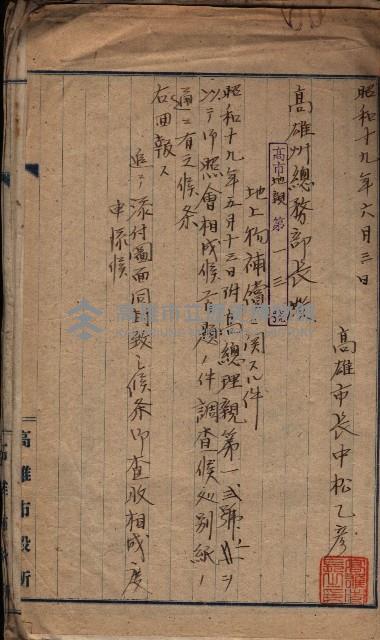 昭和十九年六月三日
高雄市長中松乙彦
高雄州總務部長殿
高市地親第一三
地上物補償ニ関スル件
昭和十九年五月十三日附高總理親第一弐號
ヲ以テ御照會相成候首題ノ件調査候処別紙ノ
通ニ有之候条
右回報ス
追テ添付圖面同封致シ候条御査收相成度
申添候
高雄市役所